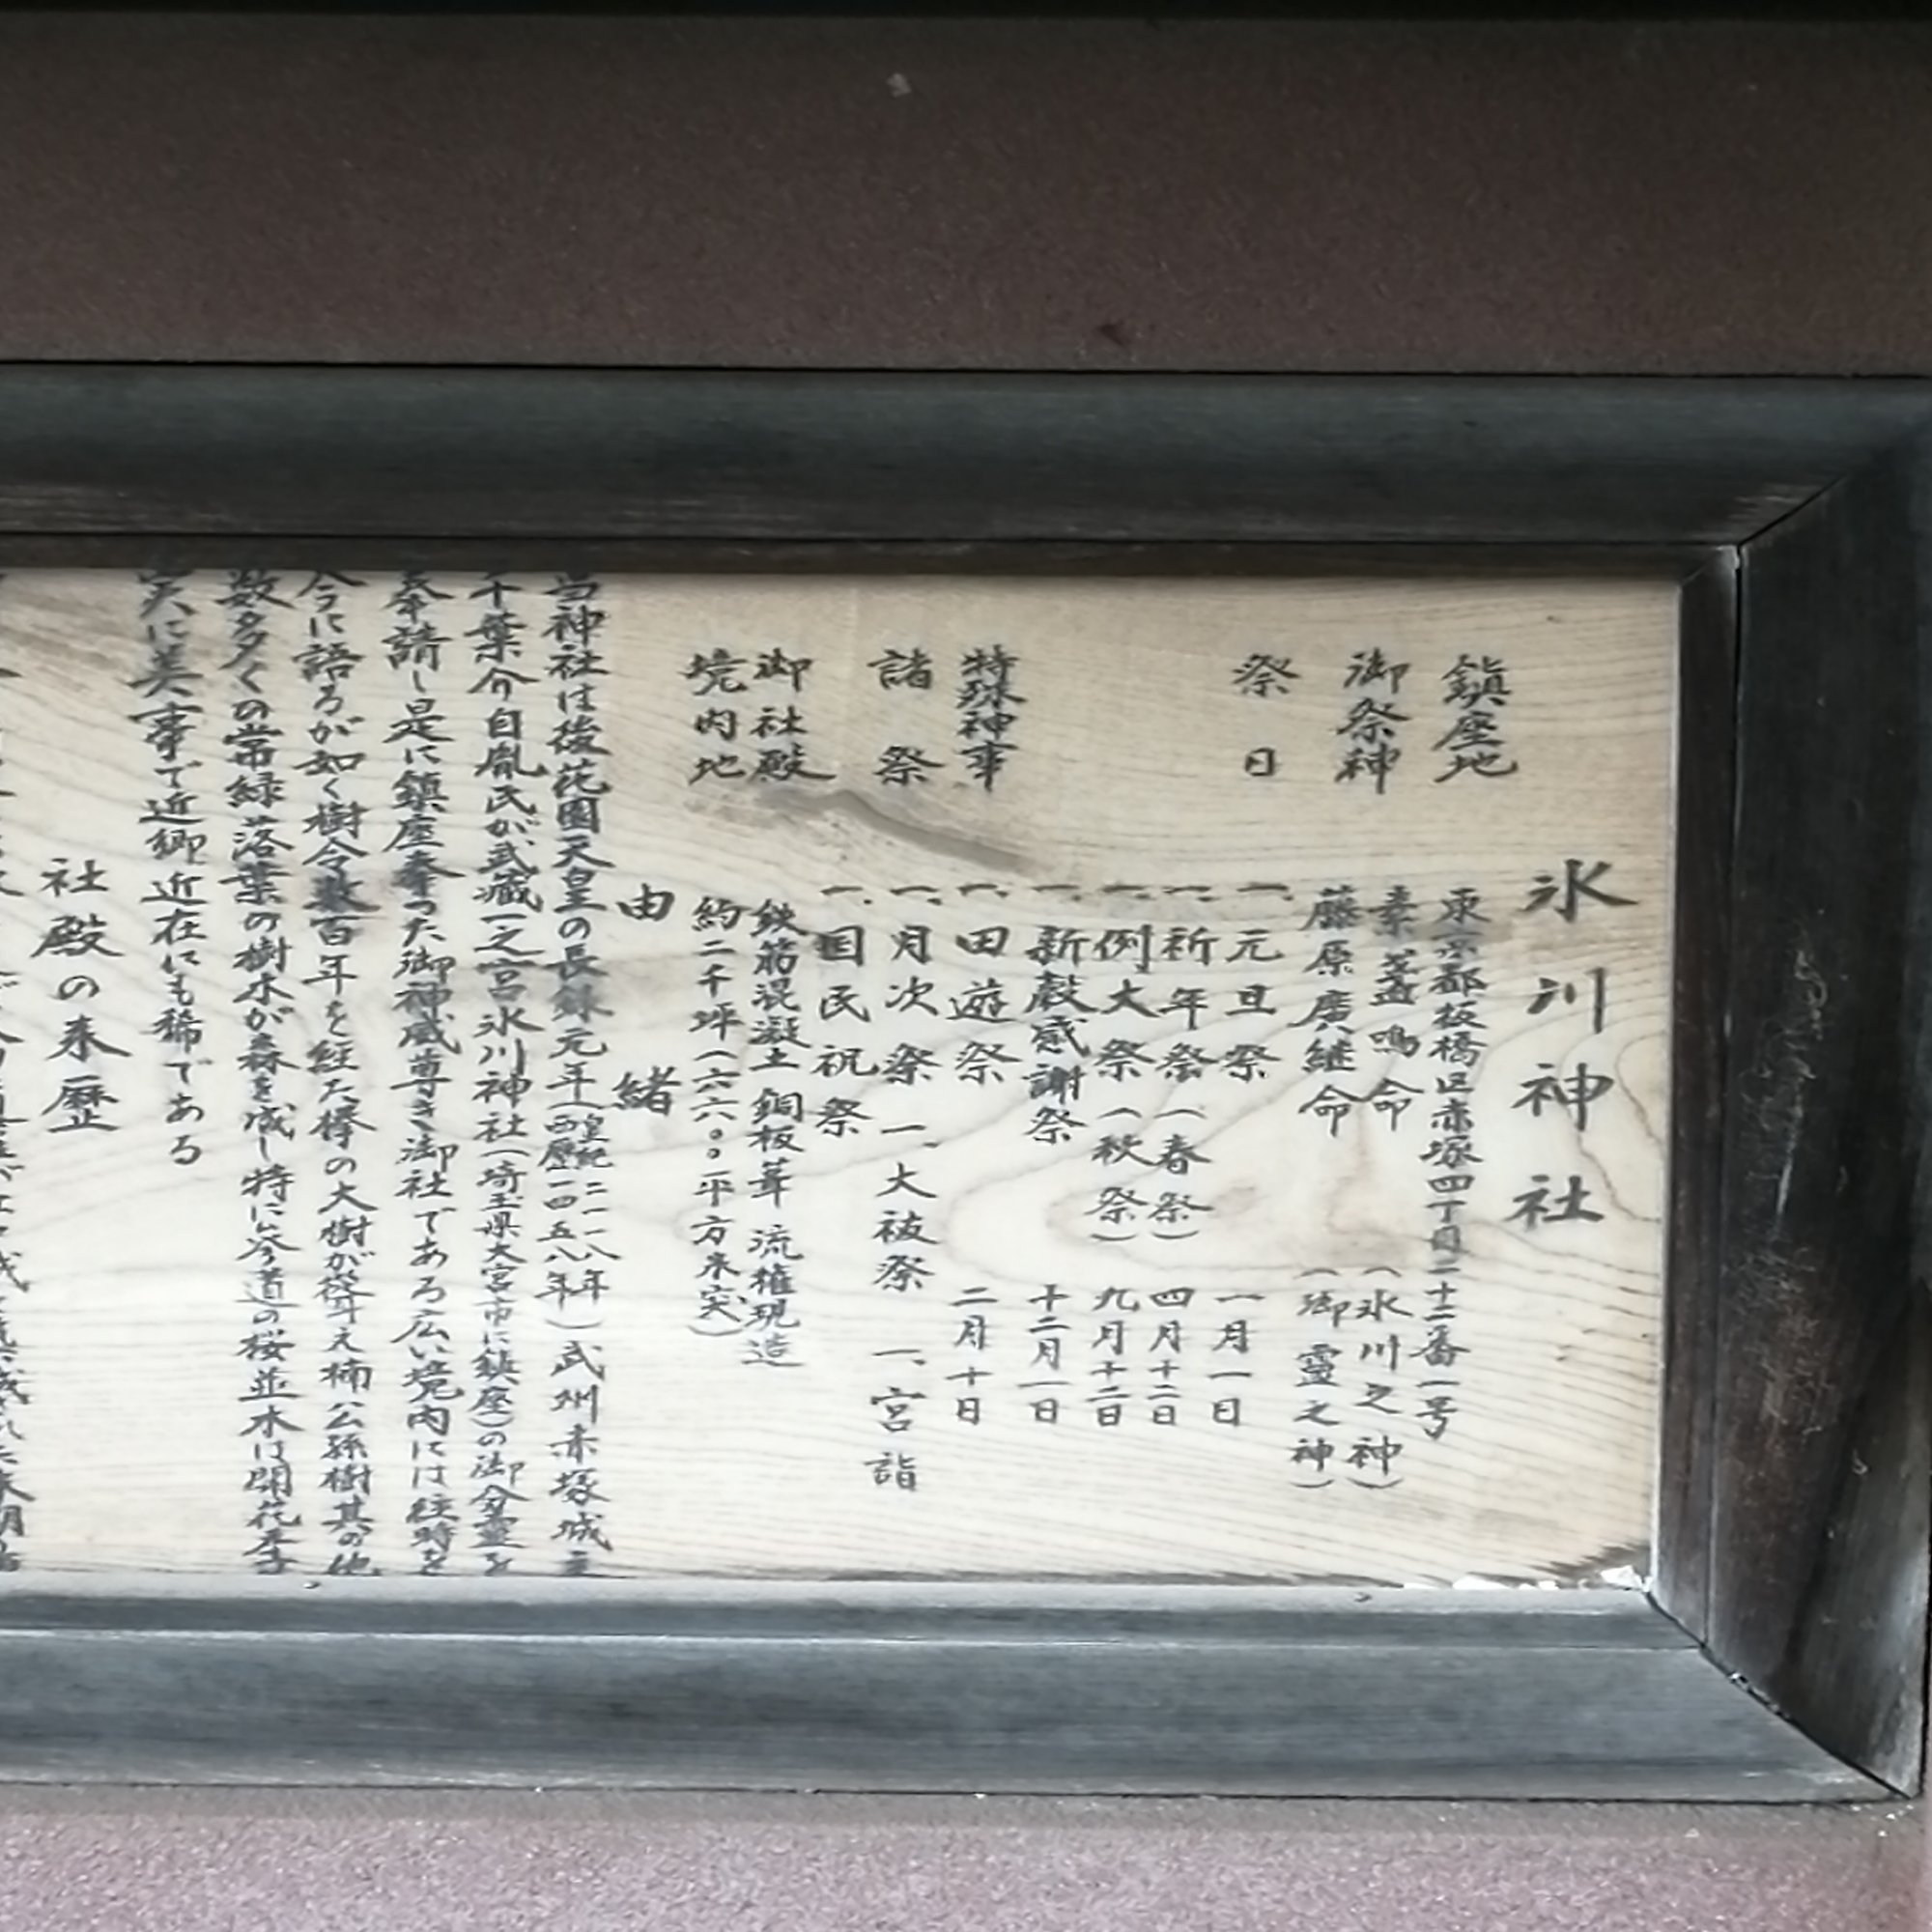 氷川神社
鎮座地 東京都板橋区赤塚四丁目二十二番一号
御祭神 素盞鳴命(氷川之神)
藤原廣継命(御靈之神)
祭日 一、元旦祭 一月一日
一、祈年祭(春祭) 四月十二日
一、例大祭(秋祭) 九月十二日
一、新穀感謝祭 十二月一日
特殊神事 一、田遊祭 二月十日
諸祭 一、月次祭 一、大祓祭 一、宮詣
一、国民祝祭
御社殿 鉄筋混凝土 銅板葺 流権現造
境内地 約二千坪(六六〇〇平方米突)
由緒
当神社は後花園天皇の長録元年(皇紀二一一八年 西歴一四五八年)武州赤塚城主
千葉介自胤氏が武蔵一之宮氷川神社(埼玉県大宮市に鎮座)の御分霊を
奉請し是に鎮座奉った御神威尊き御社である広い境内には往時を
今に語るが如く樹令数百年を経た欅の大樹が聳え楠公孫樹其の他
数多くの常緑落葉の樹木が森を成し特に参道の桜並木は開花季
実に美事で近郷近在にも稀である
社殿の来歴